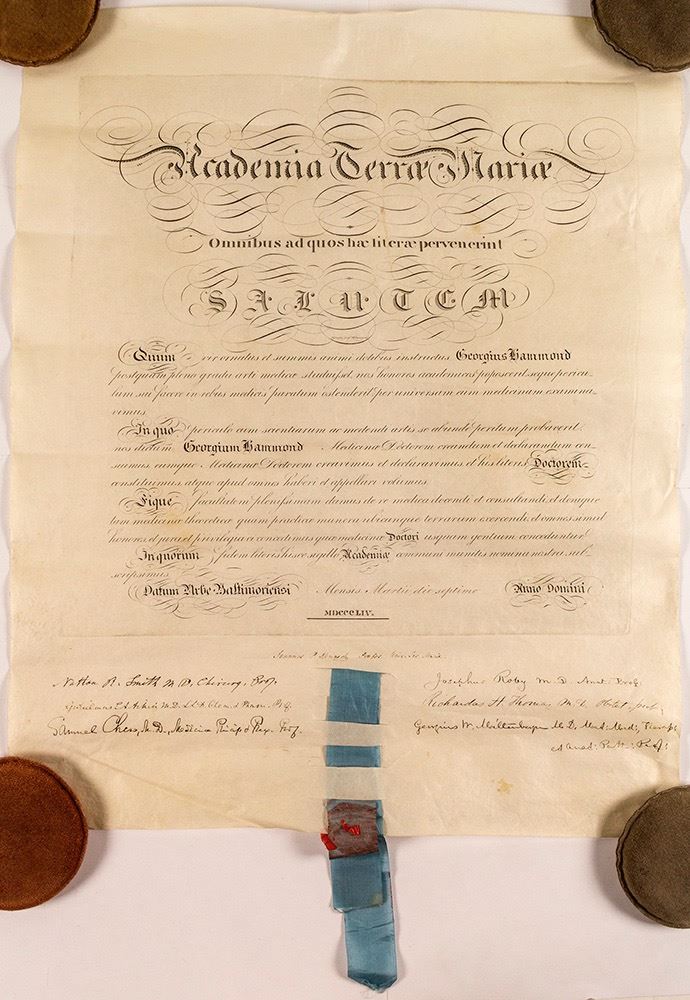 Academia Terræ Mariæ
Omnibus ad quos hæ literæ pervenerint
SALUTEM
Quum vir ornatus et summis animi dotibus instructus Georgius Hammond
postquam pleno gradu arti medicæ studuisset, nos honores academicos poposcerit, seque pericu-
lum sui facere in rebus medicis paratum ostenderit, per universam eum medicinam examina-
vimus.
In quo periculo cum scientiarum ac medendi artis se abunde peritum probaverit,
nos dictum Georgium Hammond Medicinæ Doctorem creandum et declarandum cen-
suimus, eumque Medicinæ Doctorem creavimus et declaravimus et his literis Doctorem
constituimus, atque apud omnes haberi et appellari volumus.
Eique facultatem plenissimam damus de re medica docendi et consultandi, et denique
tam medicinæ theoreticæ quam practicæ munera ubicunque terrarum exercendi, et omnes simul
honores, et jura et privilegia ei concedimus quæ medicinæ Doctori usquam gentium conceduntur.
In quorum fidem literis hisce sigillo Academiæ communi munitis nomina nostra sub-
scripsimus.
Datum Urbe Baltimoriensi Mensis Martii die septimo Anno Domini
MDCCCLIV.
Nathan R. Smith M.D. Chirurg. Prof.
Samuel Chew, M.D., Medicinæ Princip & Prax. Prof.
Josephus Roby M.D. Anat. Prof.
Richardus H. Thomas, M.D. Obst. prof.
Georgius W. Miltenberger M.D. Mat. Med.